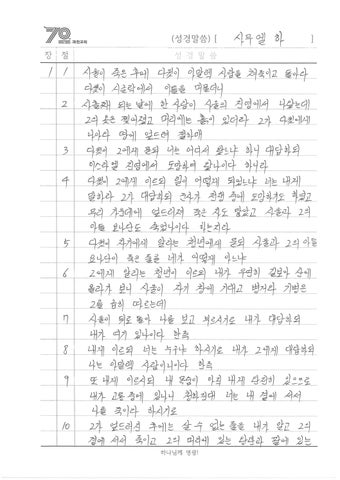 70 과천교회 (성경말씀) [ 사무엘 하 ]
장 절 성경말씀
1 1 사울이 죽은 후에 다윗이 아말렉 사람을 쳐죽이고 돌아와
다윗이 시글락에서 이틀을 머물더니
2 사흘째 되는 날에 한 사람이 사울의 진영에서 나왔는데
그의 옷은 찢어졌고 머리에는 흙이 있더라 그가 다윗에게
나아와 땅에 엎드려 절하매
3 다윗이 그에게 묻되 너는 어디서 왔느냐 하니 대답하되
이스라엘 진영에서 도망하여 왔나이다 하니라
4 다윗이 그에게 이르되 일이 어떻게 되었느냐 너는 내게
말하라 그가 대답하되 군사가 전쟁 중에 도망하기도 하였고
무리 가운데에 엎드러져 죽은 자도 많았고 사울과 그의
아들 요나단도 죽었나이다 하는지라
5 다윗이 자기에게 알리는 청년에게 묻되 사울과 그의 아들
요나단이 죽은 줄을 네가 어떻게 아느냐
6 그에게 알리는 청년이 이르되 내가 우연히 길보아 산에
올라가 보니 사울이 자기 창에 기대고 병거와 기병은
그를 급히 따르는데
7 사울이 뒤로 돌아 나를 보고 부르시기로 내가 대답하되
내가 여기 있나이다 한즉
8 내게 이르되 너는 누구냐 하시기로 내가 그에게 대답하되
나는 아말렉 사람이니이다 한즉
9 또 내게 이르시되 내 목숨이 아직 내게 완전히 있으므로
내가 고통 중에 있나니 청하건대 너는 내 곁에 서서
나를 죽이라 하시기로
10 그가 엎드러진 후에는 살 수 없는 줄을 내가 알고 그의
곁에 서서 죽이고 그의 머리에 있는 왕관과 팔에 있는
하나님께 영광!